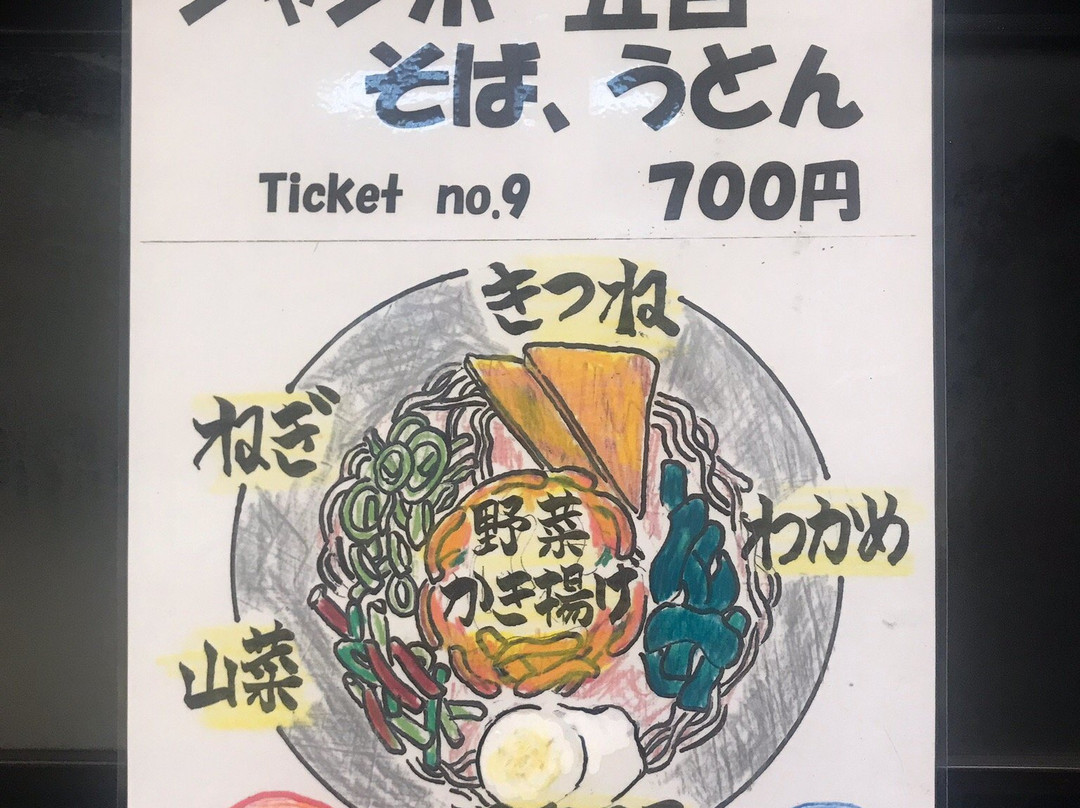 ジャンボ 五目
そば、うどん
Ticket no.9 700円
きつね
ねぎ
わかめ
野菜
かき揚げ
山菜